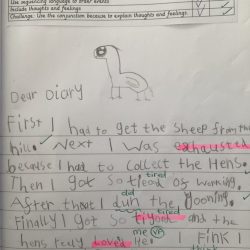 Use sequencing language to order events
Include thoughts and feelings
Challenge: Use the conjunction because to explain thoughts and feelings.
Dear Diary
First I had to get the sheep from the
hill. Next I was exhausted
because I had to collect the Hens.
tired
Then I got so of working.
did
After that I the
tired
Finally I got so and the
me VF
hens really loved me. I